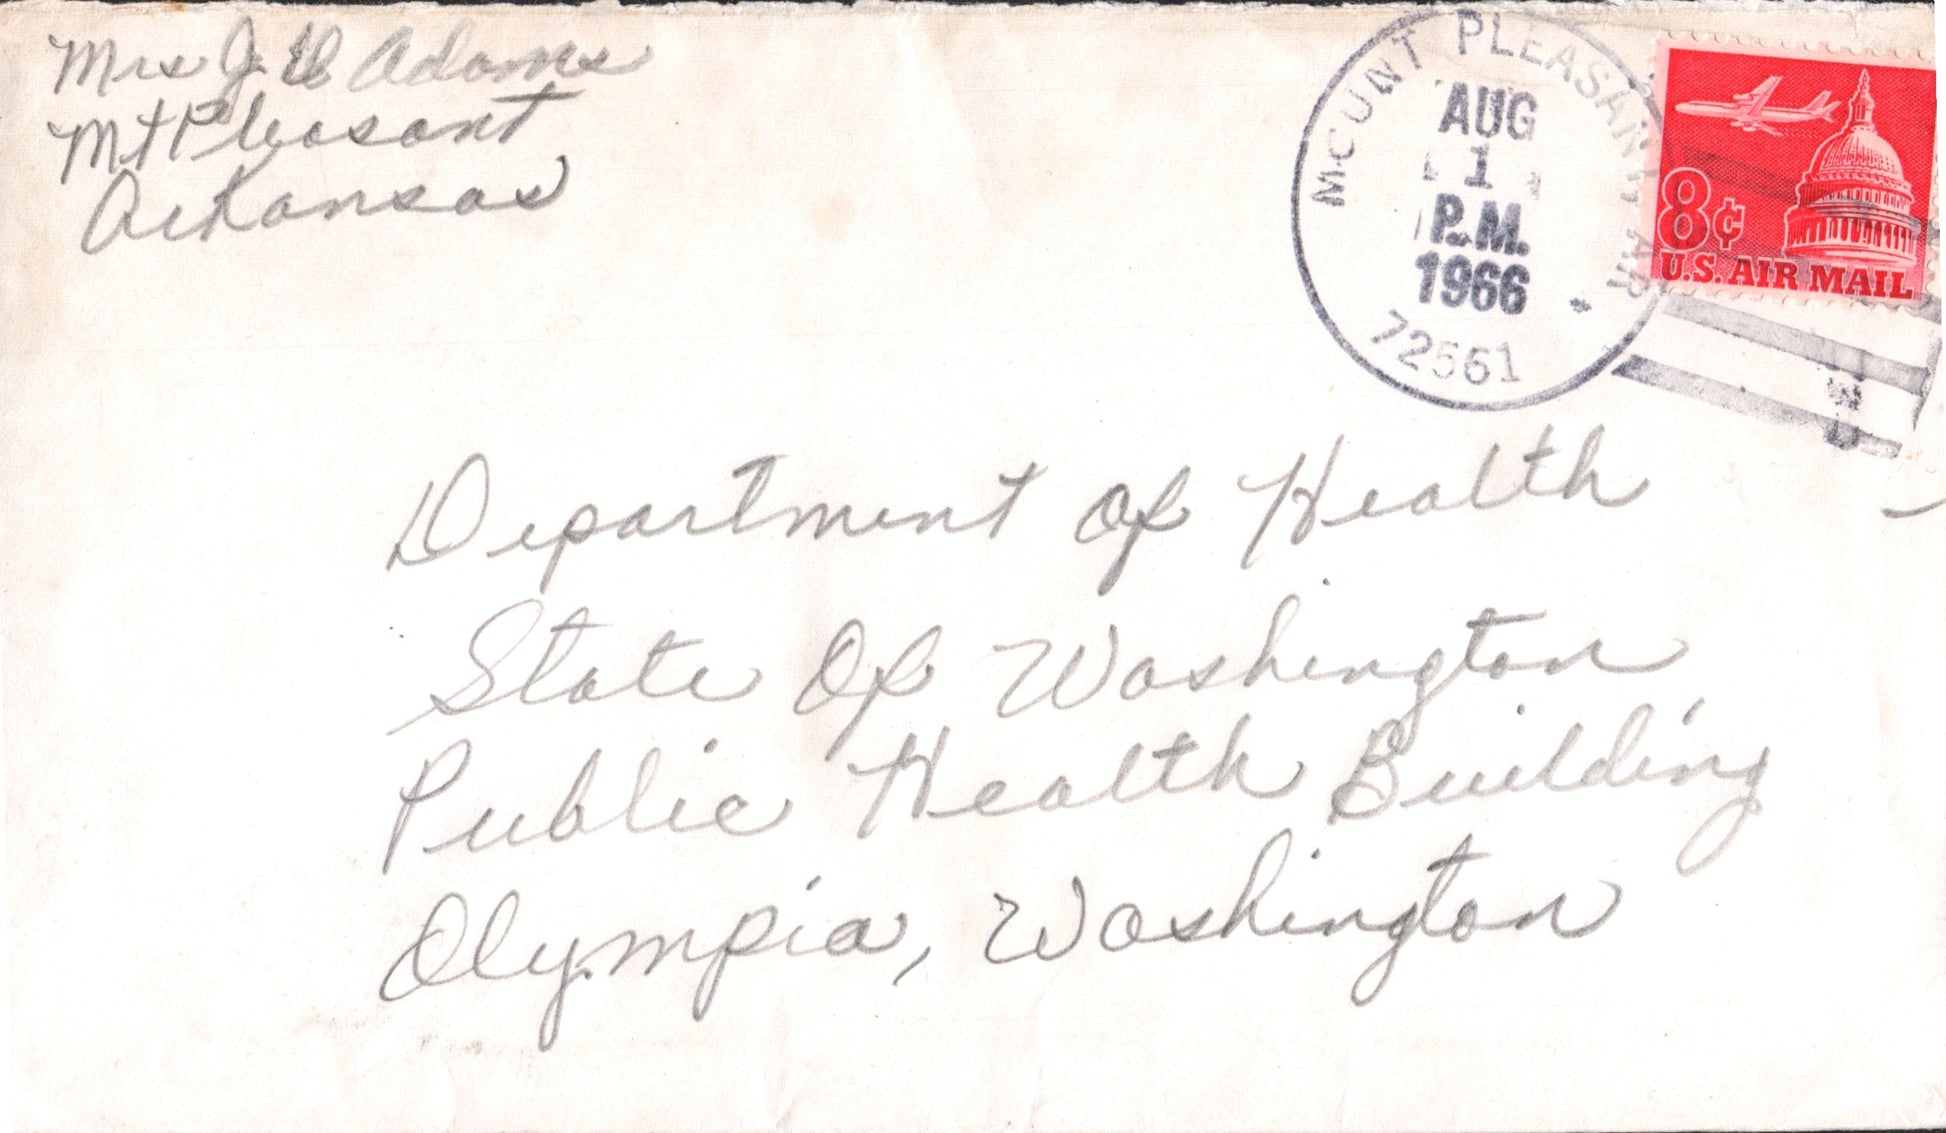 Mrs J. Adams
Mt Pleasant
Arkansas
MOUNT PLEASANT, AR
AUG
1
P.M.
1966
72561
8¢
U.S. AIR MAIL
Department Of Health
State Of Washington
Public Health Building
Olympia, Washington